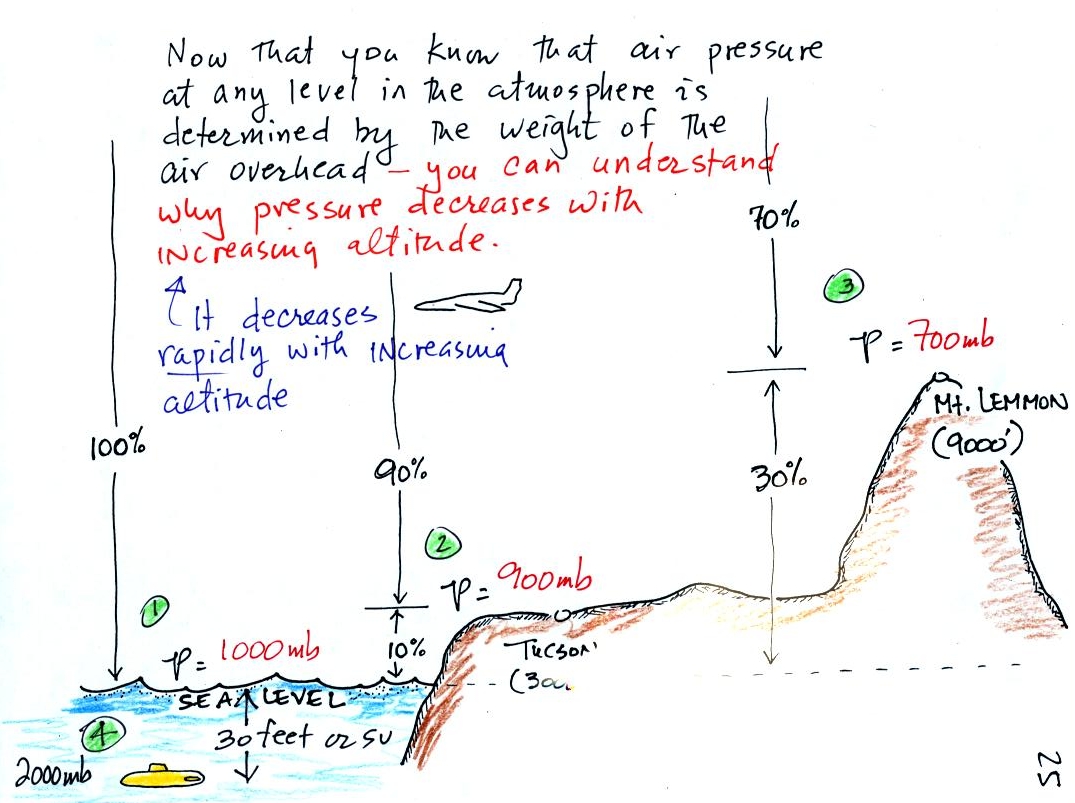 Now that you know that air pressure
at any level in the atmosphere is
determined by the weight of the
air overhead – you can understand
why pressure decreases with
increasing altitude.
It decreases
rapidly with increasing
altitude
100%
90%
10%
70%
30%
1
P = 1000mb
2
P = 900mb
3
P = 700mb
Mt. LEMMON
(9000')
TUCSON
SEA LEVEL
30 feet or so
4
2000mb
25